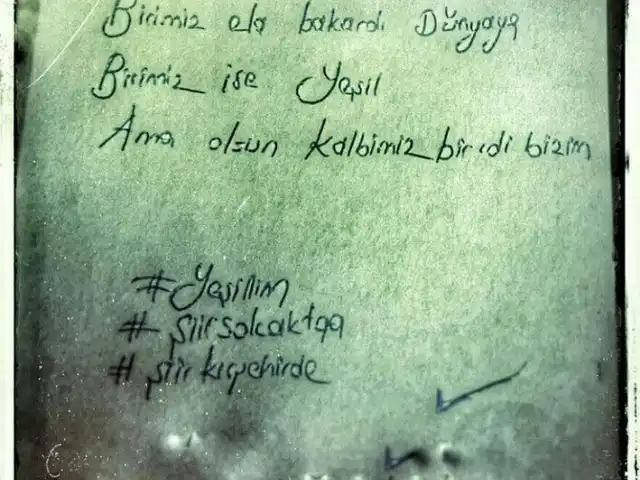 Birimiz ela bakardı Dünyaya
Birimiz ise Yeşil
Ama olsun kalbimiz bir idi bizim
#Yeşilim
# şiirsokaktaa
# şiir kırşehirde